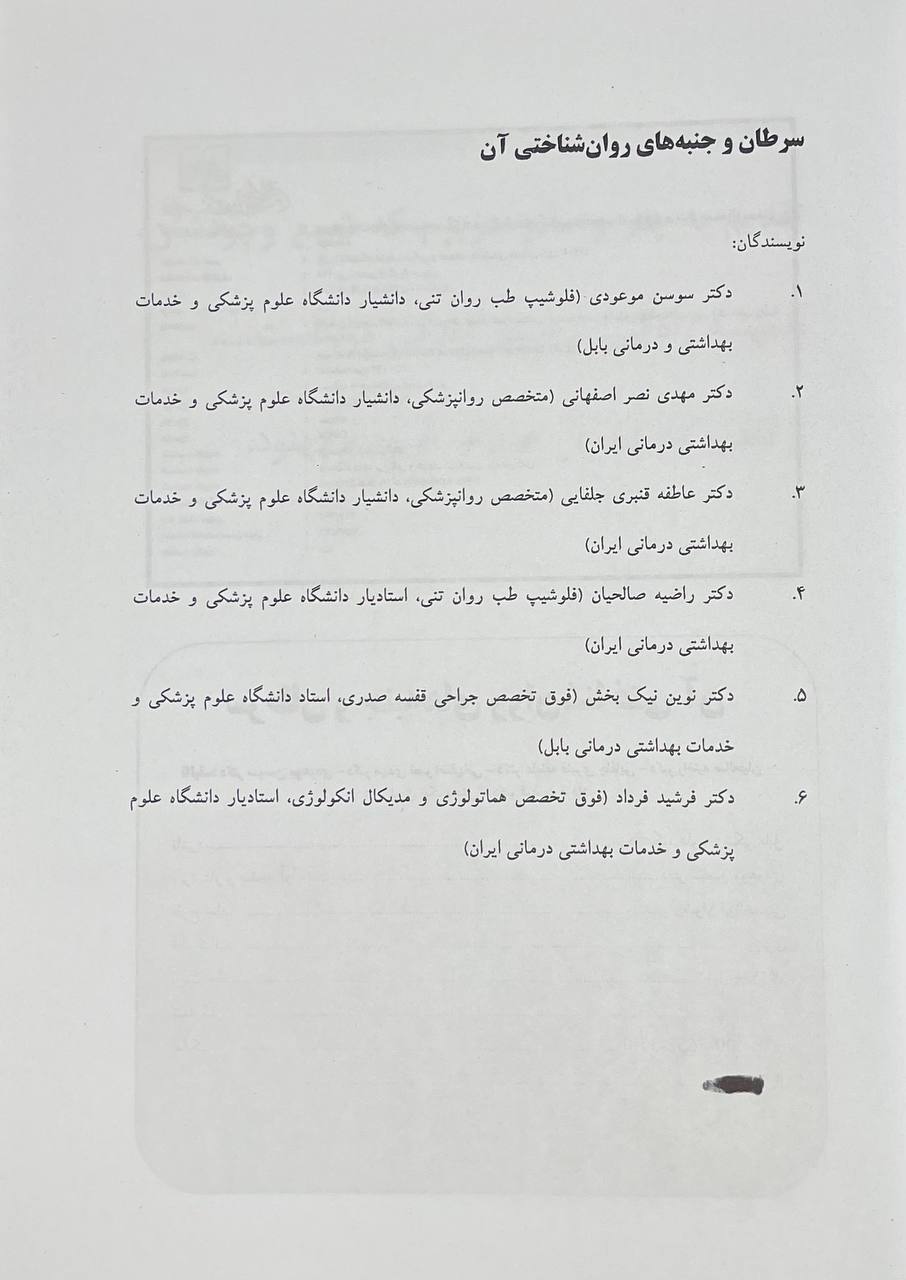 سرطان و جنبه‌های روان‌شناختی آن
نویسندگان:
۱. دکتر سوسن موعودی (فلوشیپ طب روان تنی، دانشیار دانشگاه علوم پزشکی و خدمات
بهداشتی و درمانی بابل)
۲. دکتر مهدی نصر اصفهانی (متخصص روانپزشکی، دانشیار دانشگاه علوم پزشکی و خدمات
بهداشتی درمانی ایران)
۳. دکتر عاطفه قنبری جلفایی (متخصص روانپزشکی، دانشیار دانشگاه علوم پزشکی و خدمات
بهداشتی درمانی ایران)
۴. دکتر راضیه صالحیان (فلوشیپ طب روان تنی، استادیار دانشگاه علوم پزشکی و خدمات
بهداشتی درمانی ایران)
۵. دکتر نوین نیک بخش (فوق تخصص جراحی قفسه صدری، استاد دانشگاه علوم پزشکی و
خدمات بهداشتی درمانی بابل)
۶. دکتر فرشید فرداد (فوق تخصص هماتولوژی و مدیکال انکولوژی، استادیار دانشگاه علوم
پزشکی و خدمات بهداشتی درمانی ایران)